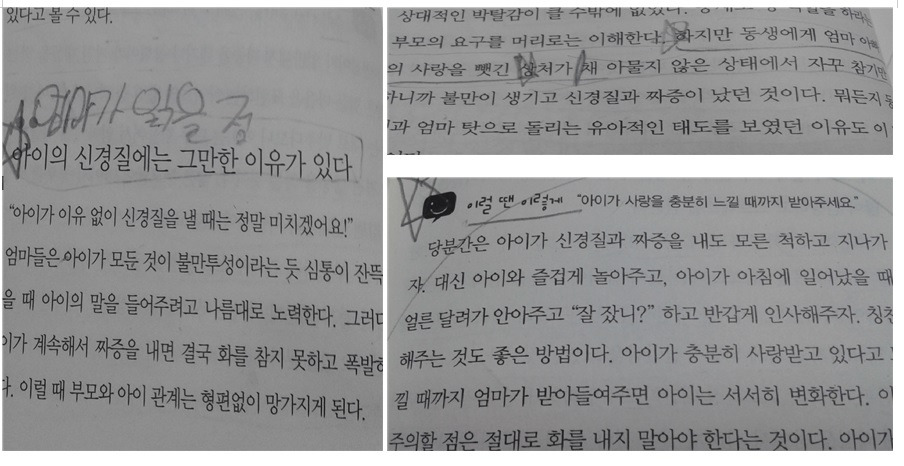 있다고 볼 수 있다.
엄마가 읽을 점
아이의 신경질에는 그만한 이유가 있다
“아이가 이유 없이 신경질을 낼 때는 정말 미치겠어요!”
엄마들은 아이가 모든 것이 불만투성이라는 듯 심통이 잔뜩
을 때 아이의 말을 들어주려고 나름대로 노력한다. 그러
이가 계속해서 짜증을 내면 결국 화를 참지 못하고 폭발
다. 이럴 때 부모와 아이 관계는 형편없이 망가지게 된다.
상대적인 박탈감이 클 수밖에 없었다.
부모의 요구를 머리로는 이해한다. 하지만 동생에게 엄마
의 사랑을 뺏긴 상처가 채 아물지 않은 상태에서 자꾸 참기만
하니까 불만이 생기고 신경질과 짜증이 났던 것이다. 뭐든지
과 엄마 탓으로 돌리는 유아적인 태도를 보였던 이유도
이럴 땐 이렇게 “아이가 사랑을 충분히 느낄 때까지 받아주세요.”
당분간은 아이가 신경질과 짜증을 내도 모른 척하고 지나가
자. 대신 아이와 즐겁게 놀아주고, 아이가 아침에 일어났을 때
얼른 달려가 안아주고 “잘 잤니?” 하고 반갑게 인사해주자. 칭찬
해주는 것도 좋은 방법이다. 아이가 충분히 사랑받고 있다고
낄 때까지 엄마가 받아들여주면 아이는 서서히 변화한다.
주의할 점은 절대로 화를 내지 말아야 한다는 것이다. 아이가